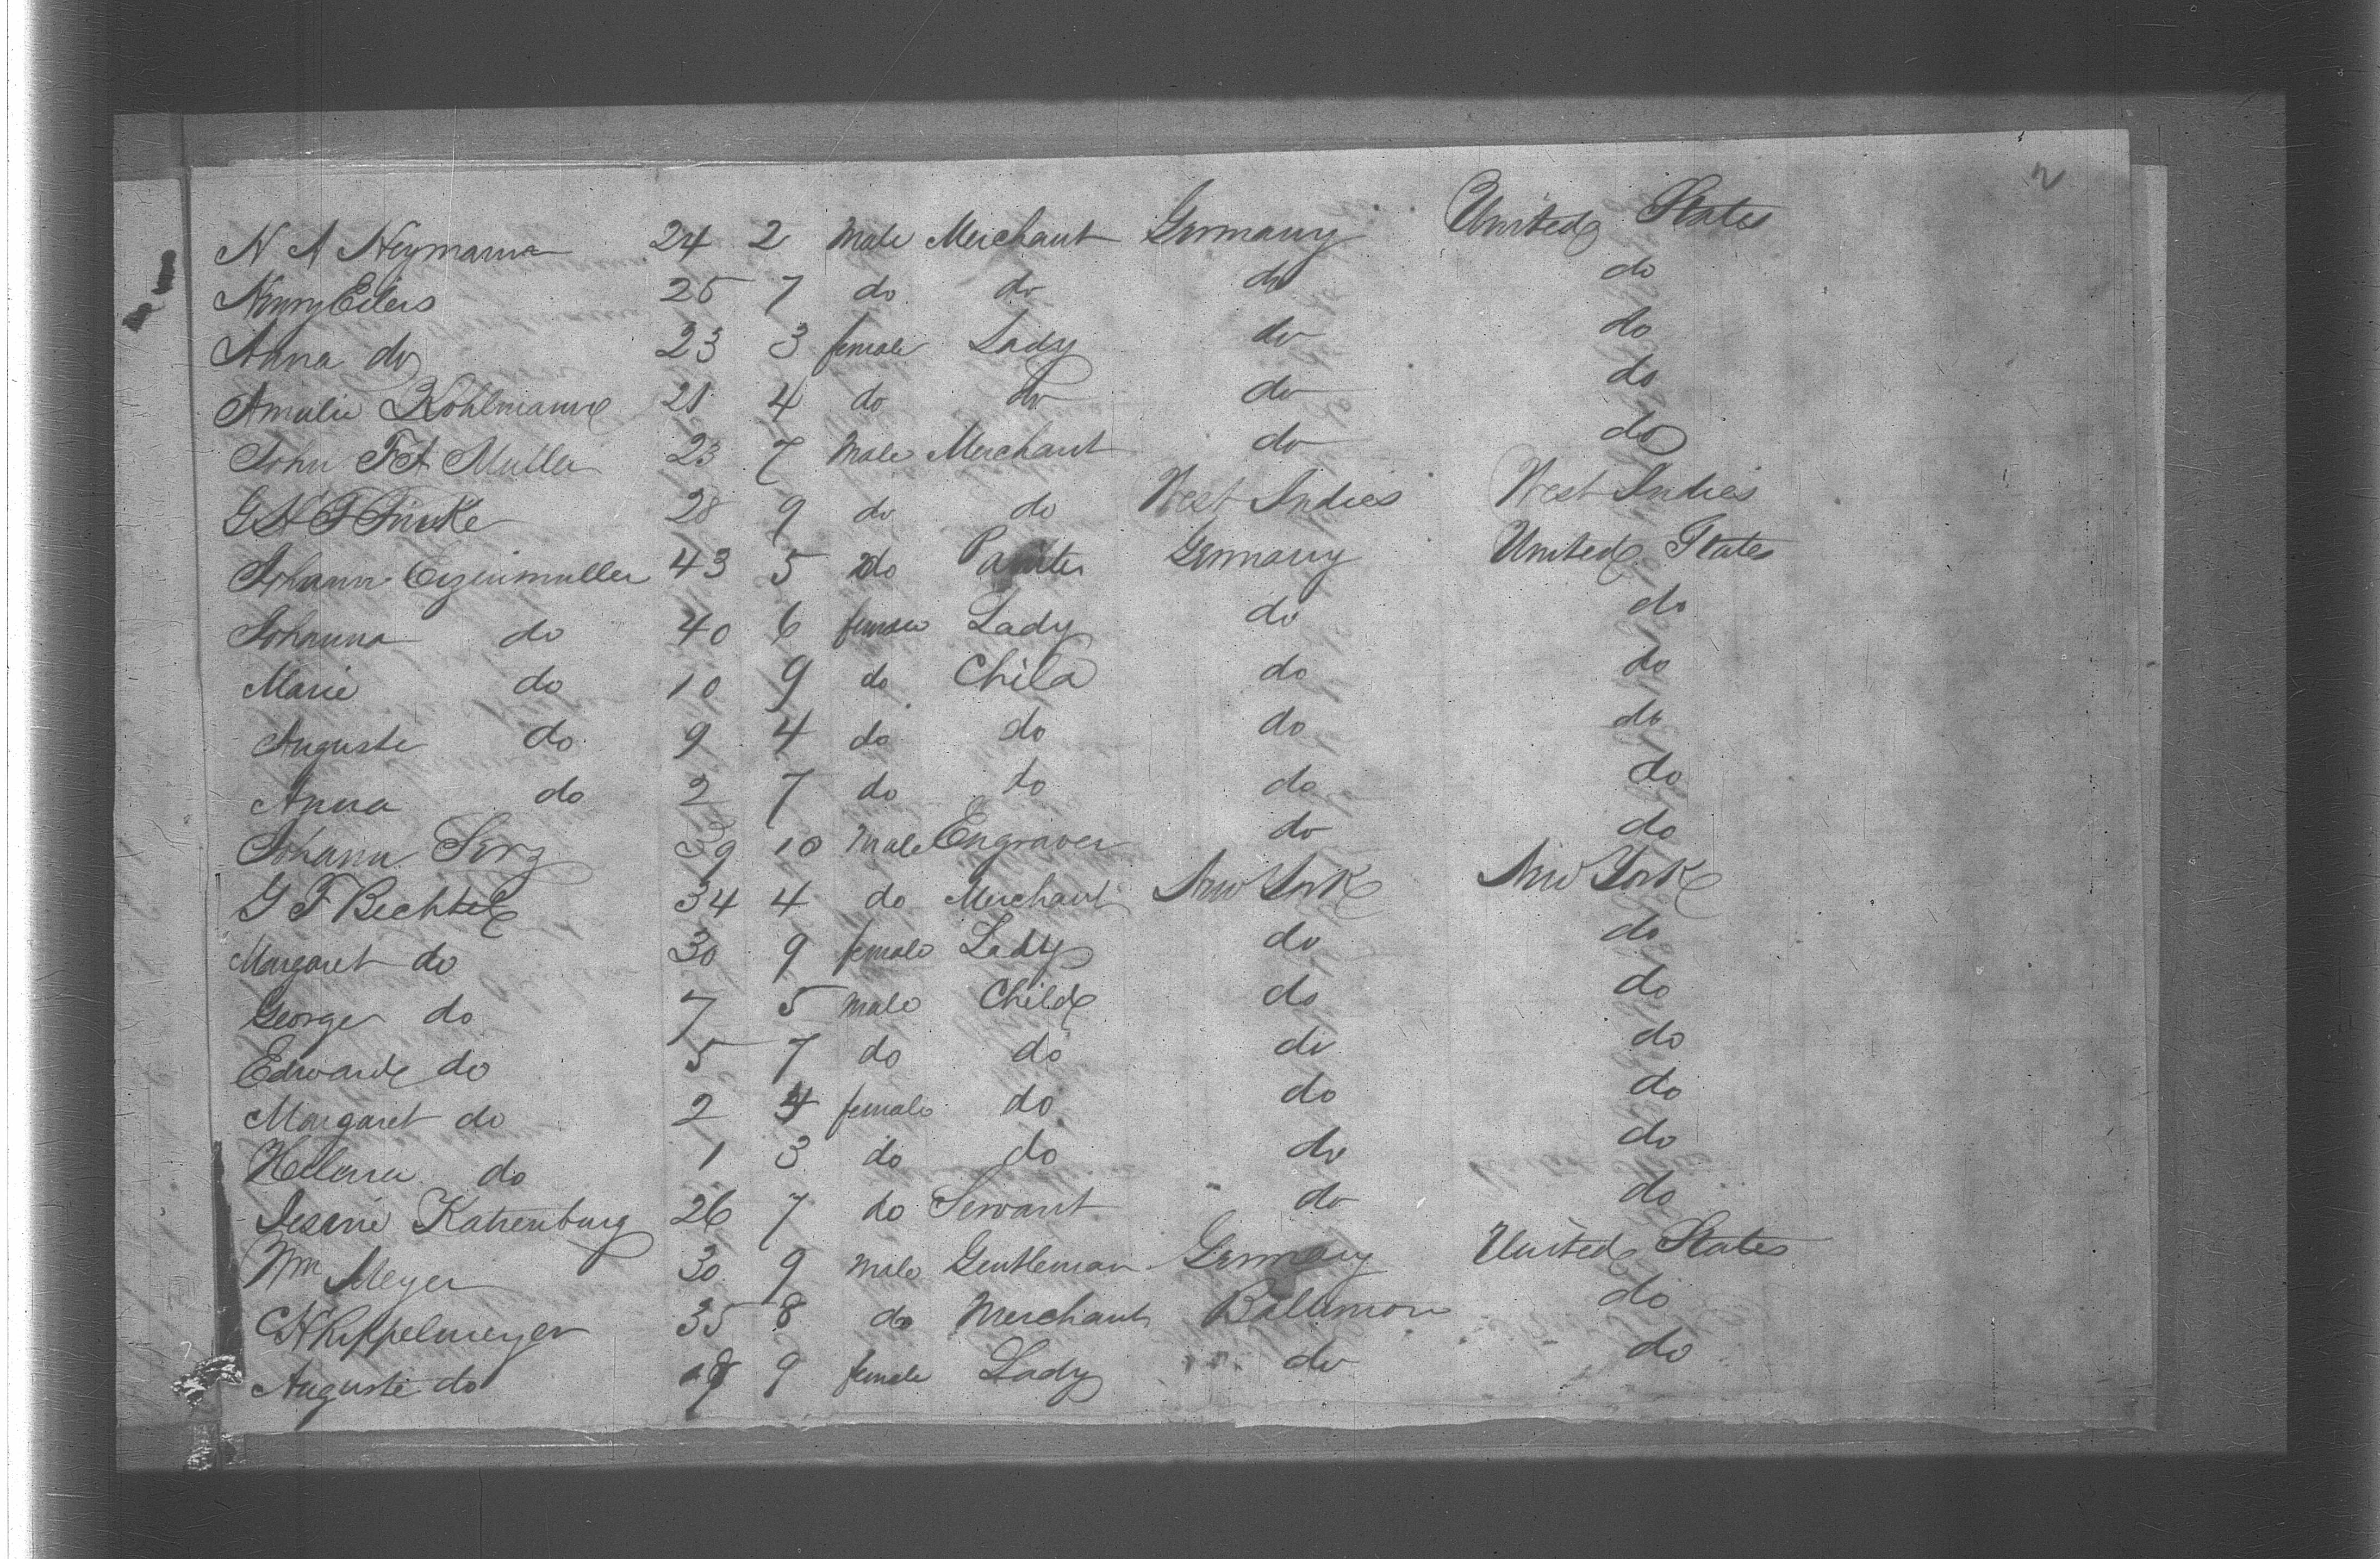 2
N A Heymann 24 2 Male Merchant Germany United States
Henry Eilers 25 7 do do do do
Anna do 23 3 female Lady do do
Amalie Kohlmann 21 4 do do do do
John FA Muller 23 7 Male Merchant do do
G H F Finke 28 9 do do West Indies West Indies
Johann Eizenmuller 43 5 do Painter Germany United States
Johanna do 40 6 female Lady do do
Marie do 10 9 do Child do do
Auguste do 9 4 do do do do
Anna do 2 7 do do do do
Johann Sorg 39 10 Male Engraver do do
G F Bechtel 34 4 do Merchant New York New York
Margaret do 30 9 female Lady do do
George do 7 5 Male Child do do
Edward do 5 7 do do do do
Margaret do 2 4 female do do do
Helena do 1 3 do do do do
Katzenburg 26 7 do Servant do do
Wm Meyer 30 9 Male Gentleman Germany United States
C H Kippelmeyer 35 8 do Merchant Baltimore do
Auguste do 9 female Lady do do